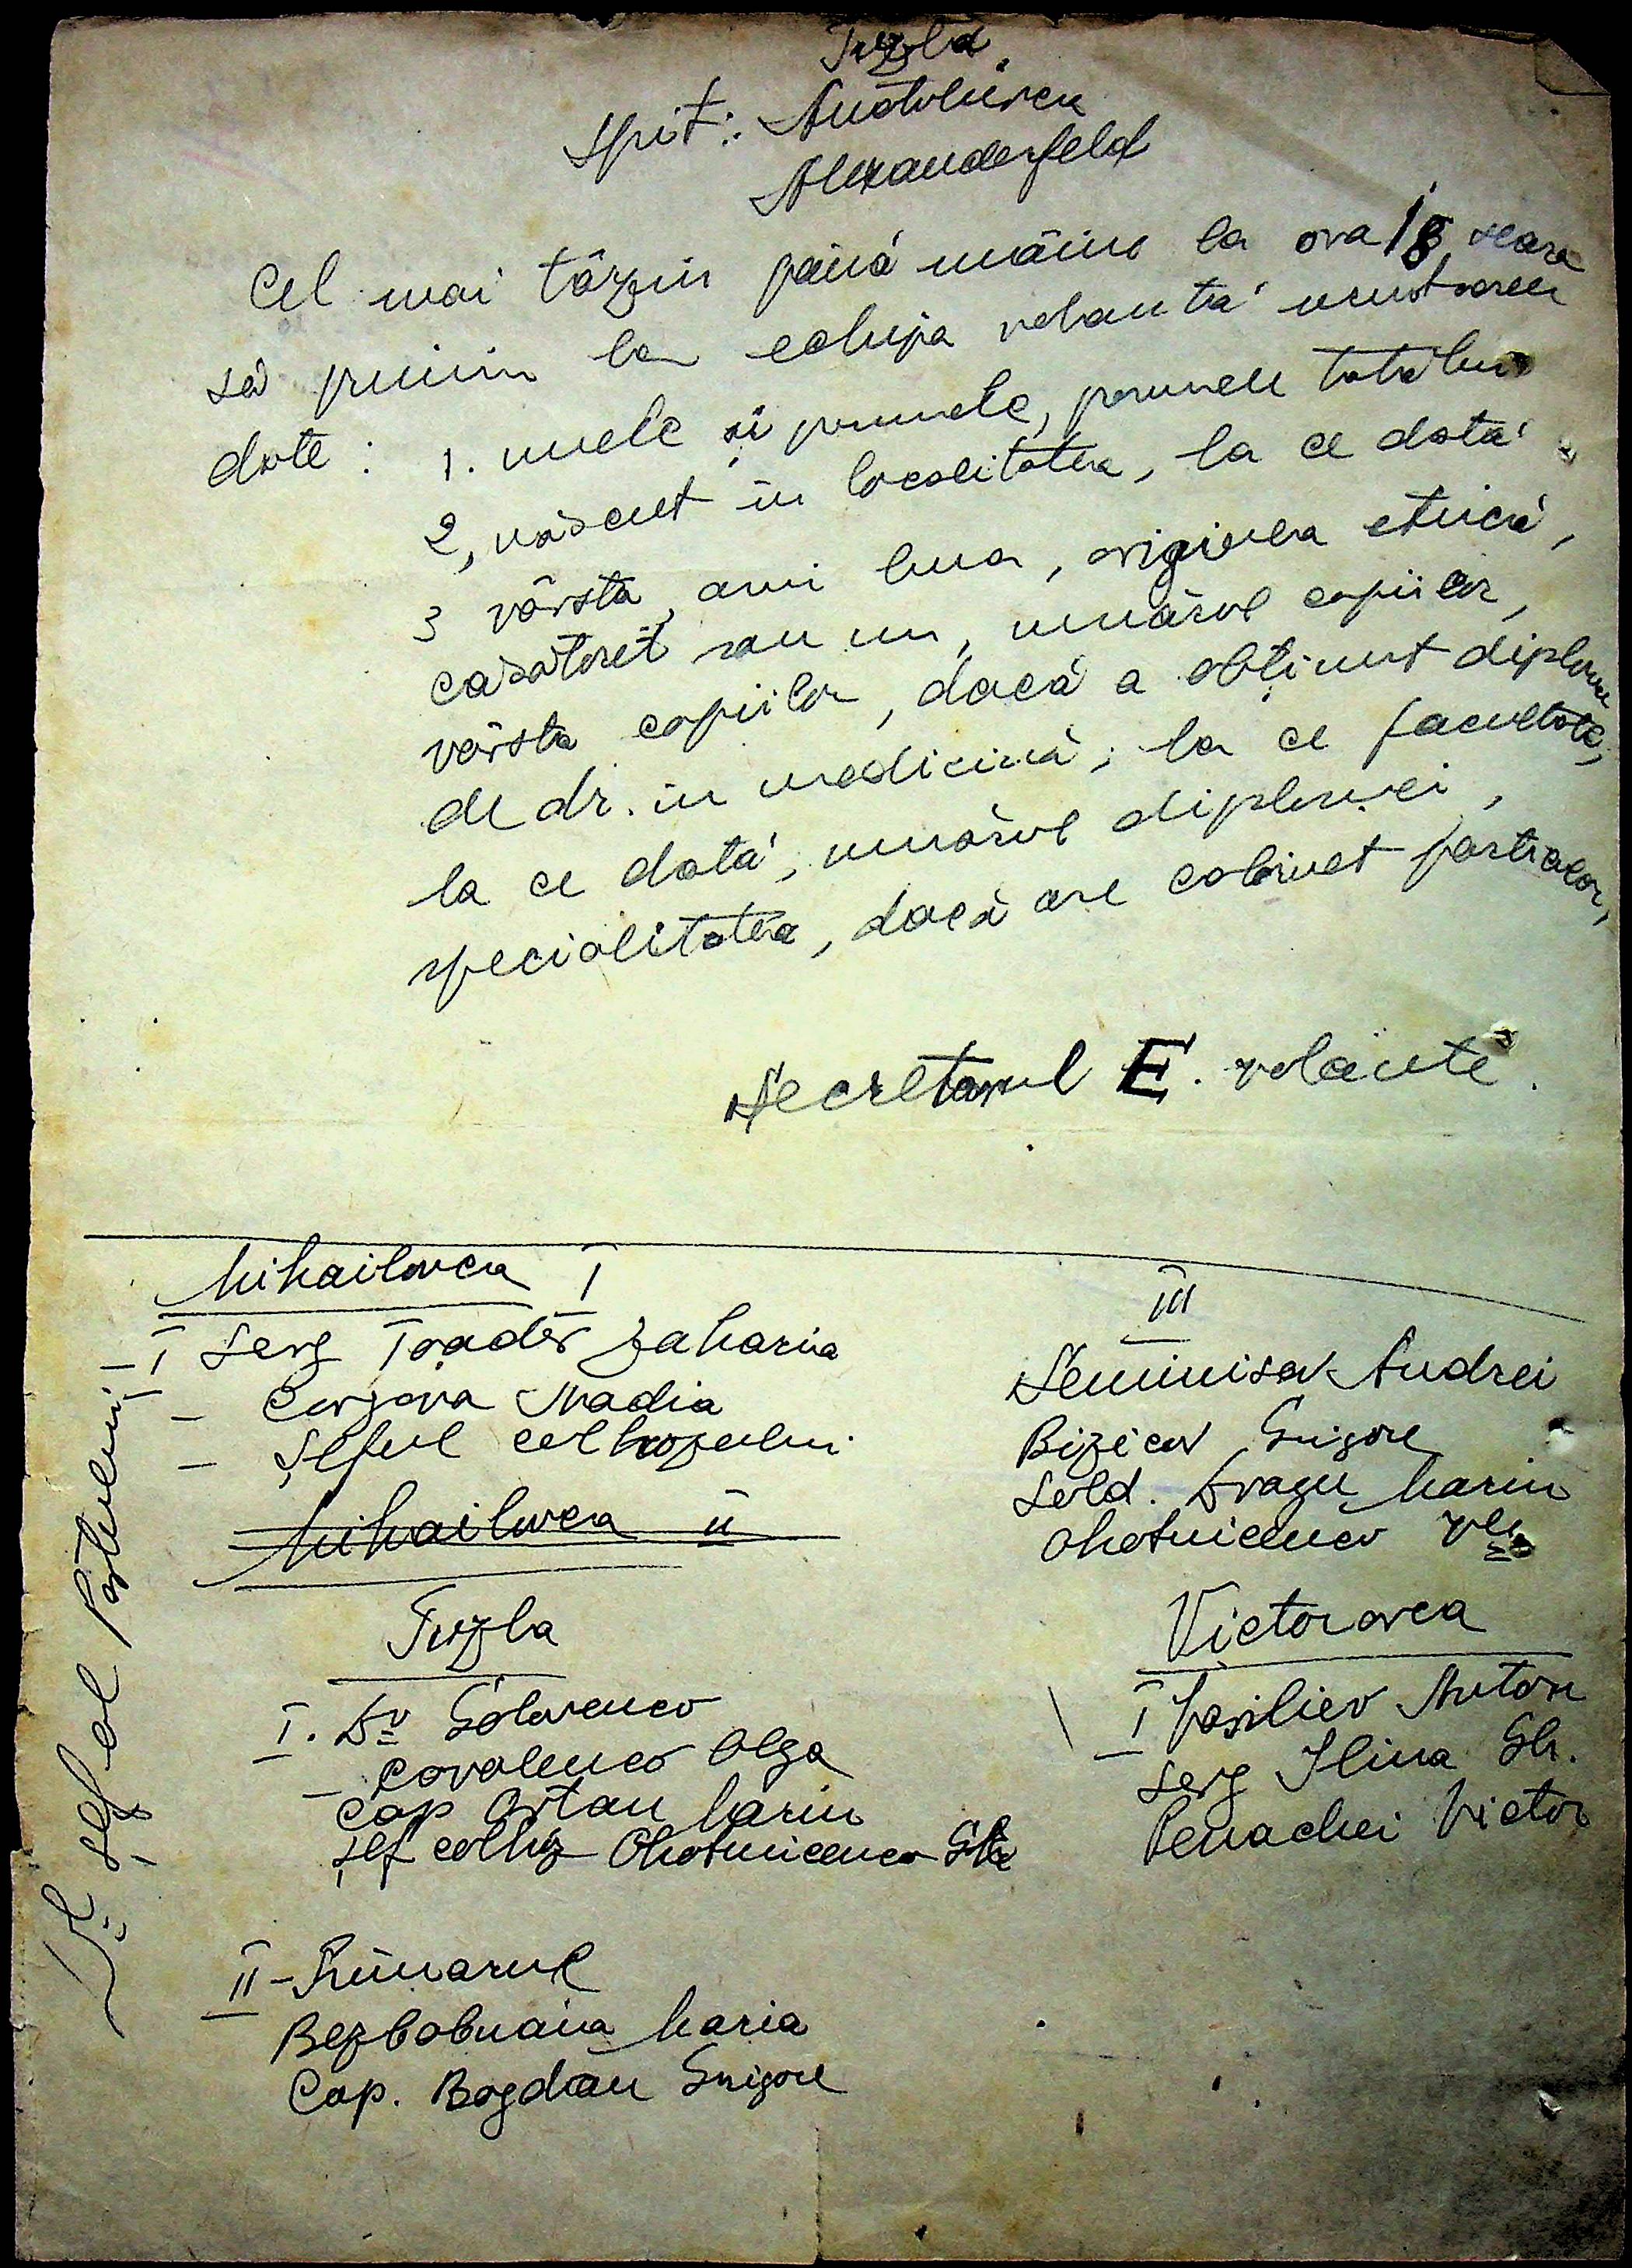 Tuzla
Spit: Anatolievca
Alexanderfeld
Cel mai târziu până mâine la ora 18 seara
să primim la echipa volantă următoarele
date : 1. numele și pronumele, pronumele tatălui
2, născut în localitatea, la ce dată
3 vârsta, ani luna, originea etnică,
casatorit sau nu, numărul copiilor,
vârsta copiilor, dacă a obținut diploma
de dr. în medicină; la ce facultate,
la ce dată, numărul diplomei,
specialitatea, dacă are cabinet particular,
Secretarul E. volante.
Mihailovca I
I Serg Toader Zaharia
– Nadia
– Șeful colhozului
Mihailovca II
Tuzla
I. Dr Golovenco
– Covalenco Olga
Cap Ortan Marin
șef colhoz Ohotnicenco Gh
II – Primarul
Bezbabnaia Maria
Cap. Bogdan Grigore
III
Seminisov Andrei
Bizicov Grigore
Sold. Dragu Marin
Ohotnicenco
Victorovca
I Vasiliev Anton
Serg Ilina Gh.
Penachei Victor
Dl Șef al Postului